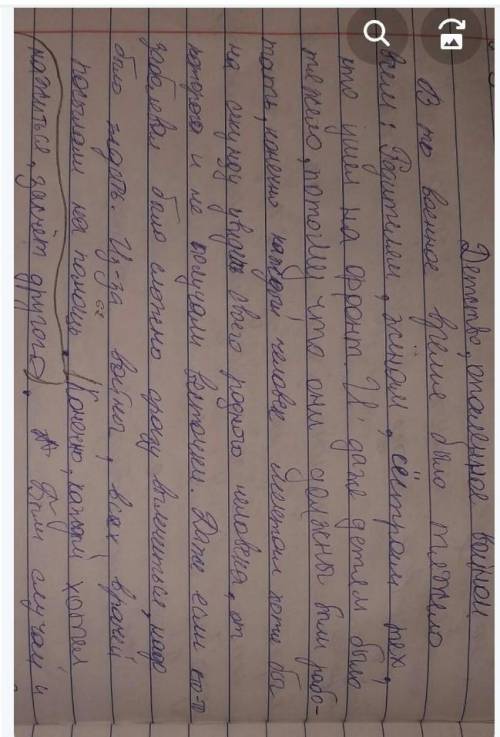 Детство, опаленное войной
В то военное время было тяжело
всем: Родителям, жёнам, сёстрам тех,
кто ушёл на фронт. И даже детям было
тяжело, потому что они должны были рабо-
тать, конечно каждый человек мечтал хотя бы
на секунду увидеть своего родного человека, от
которого и не получали весточки. Даже если кто-то
заболевал было сложно сразу вылечиться, надо
было ждать. Из-за войны, всех врачей
посылали на помощь. Конечно, каждый хотел
, заменят другого). Был случай и